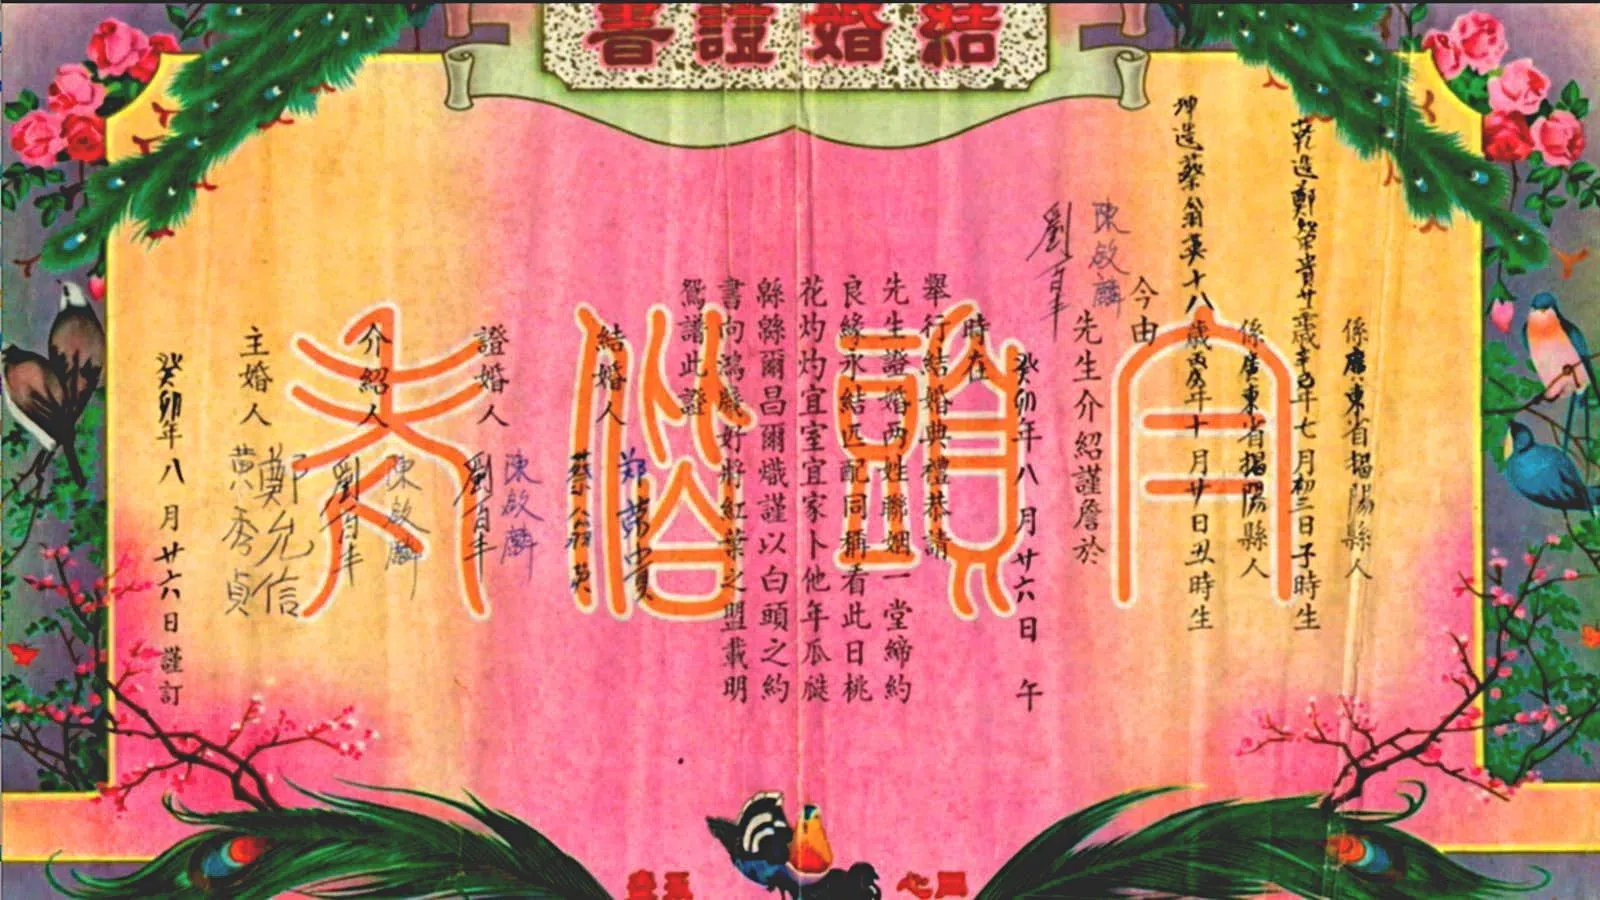 結婚證書
白頭偕老
係廣東省揭陽縣人
乾造鄭榮貴廿三歲辛巳年七月初三日子時生
係廣東省揭陽縣人
坤造蔡翁英十八歲丙戌年十月廿日丑時生
今由
陳啟麟
劉百丰
先生介紹謹詹於
癸卯年八月廿六日 午
時在
舉行結婚典禮恭請
先生證婚两姓聯姻一堂締約
良緣永結匹配同稱看此日桃
花灼灼宜室宜家卜他年瓜瓞
緜緜爾昌爾熾謹以白頭之約
書向鴻牋好將紅葉之盟載明
鴛譜此證
結婚人
鄭榮貴
蔡翁英
證婚人
陳啟麟
劉百丰
介紹人
陳啟麟
劉百丰
主婚人
鄭允信
黃秀貞
癸卯年八月廿六日謹訂